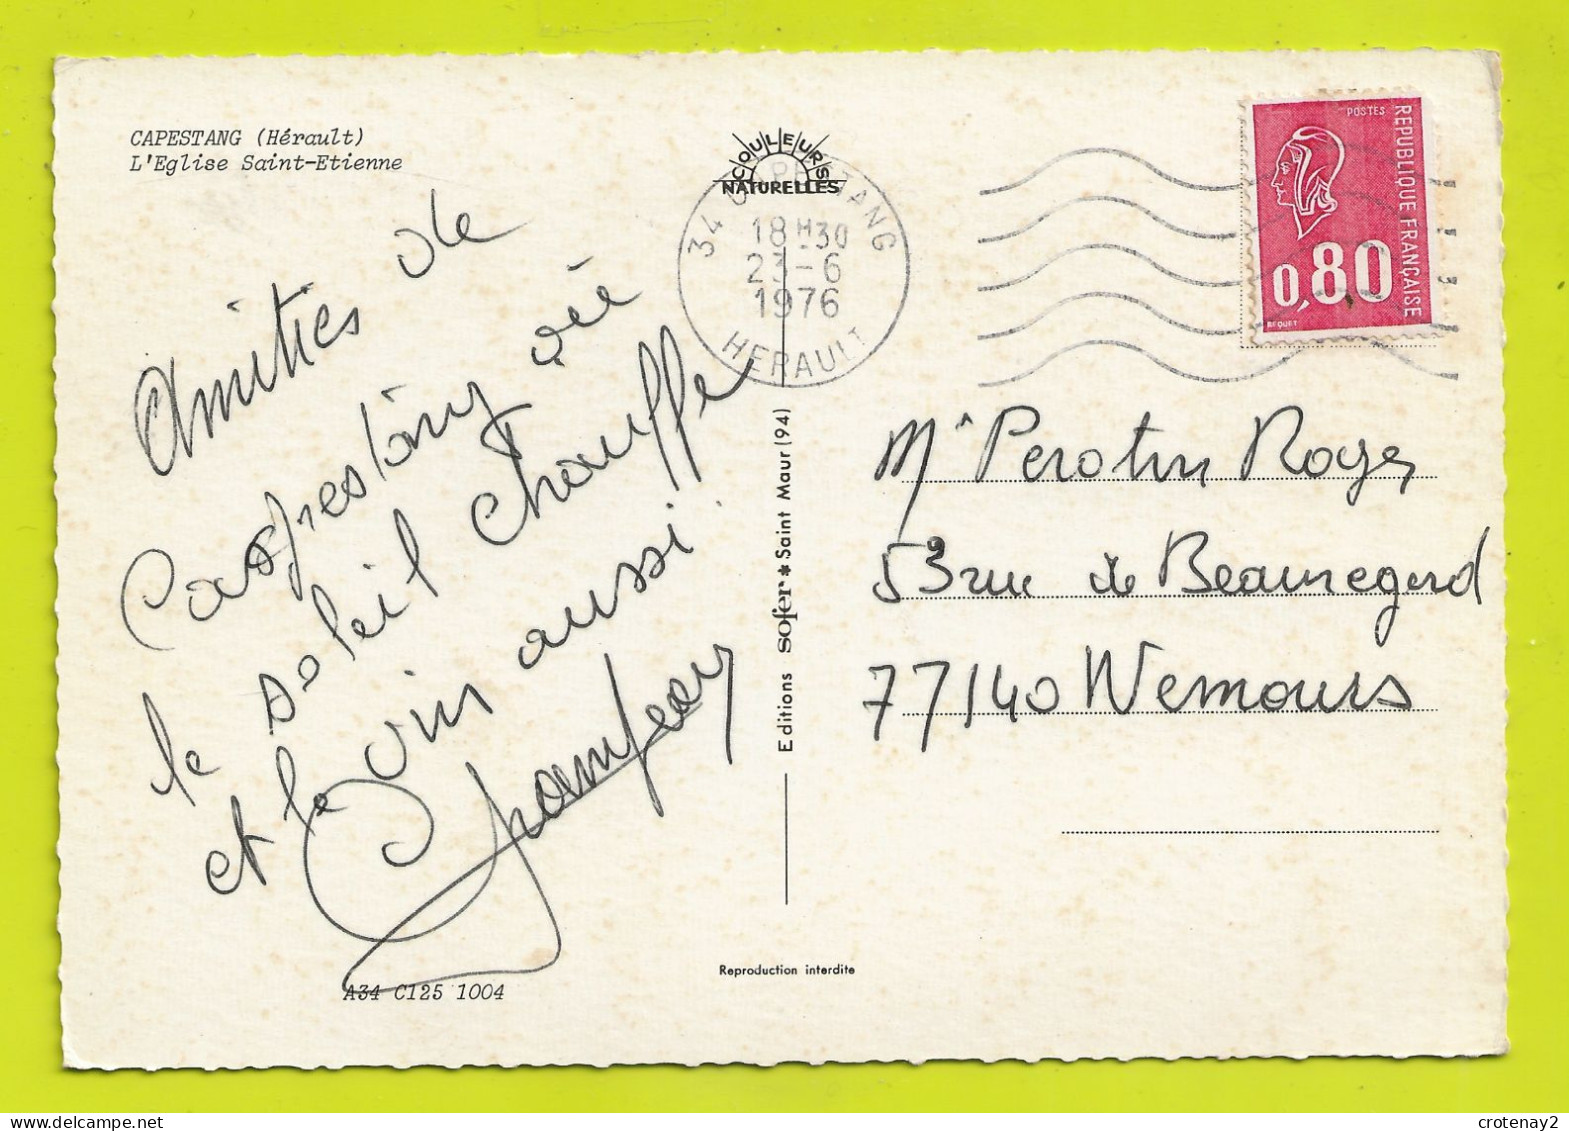 CAPESTANG (Hérault)
L'Eglise Saint-Etienne
COULEURS
NATURELLES
34 CAPESTANG
18 H 30
23-6
1976
HERAULT
POSTES
REPUBLIQUE FRANÇAISE
0,80
BEQUET
Amitiés de
Capestang où
le soleil chauffe
et le vin aussi.
Mr Perotin Roger
53 rue de Beauregard
77140 Nemours
Editions sofer * Saint Maur (94)
Reproduction interdite
A34 C125 1004
crotenay2